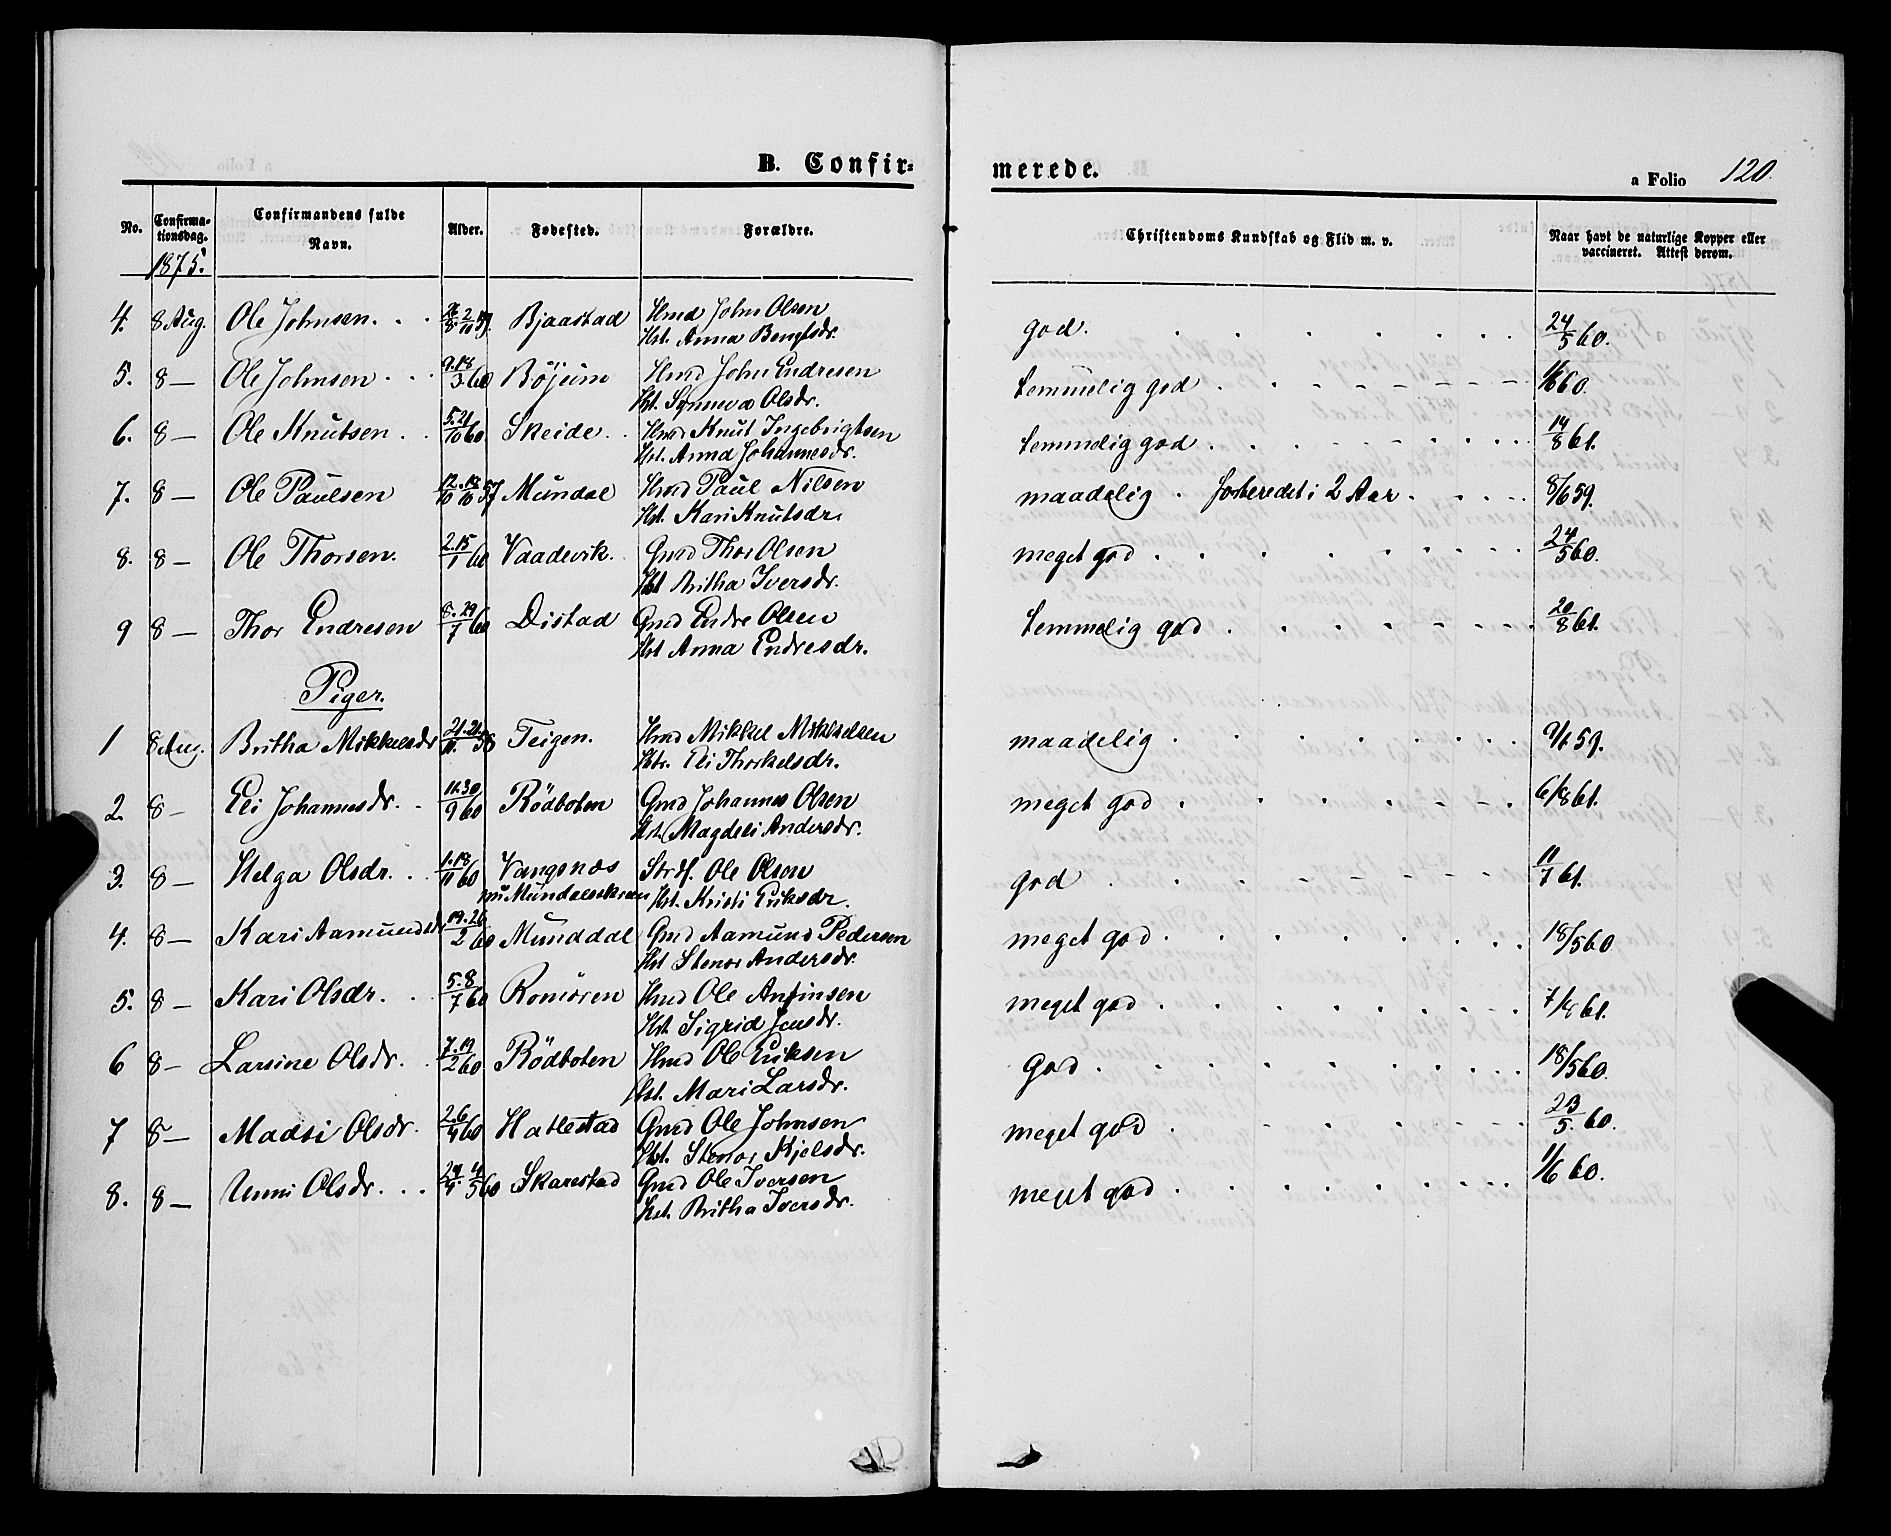 B. Confirmerede.
a Folio 120.
No. Confirmationsdag. Confirmandens fulde Navn. Alder. Fødested. Forældre. Christendoms Kundskab og Flid m. v. Naar havt de naturlige Kopper eller vaccineret. Attest derom.
1875.
4. 8 Aug. Ole Johnsen. Bjaastad Hmd John Olsen god. 24/5 60.
Hst. Anna Bengtsdr.
5. 8 — Ole Johnsen 9.18/3 60 Böjum Hmd John Endresen temmelig god 1/6 60.
Hst. Synneva Olsdr.
6. 8 — Ole Knutsen 5.21/10 60 Skeide Hmd Knut Ingebrigtsen temmelig god 14/8 61.
Hst. Anna Johannesdr.
7. 8 — Ole Paulsen 57 Mundal Hmd Paul Nilsen maadelig. forberedet i 2 Aar. 8/6 59.
Hst. Kari Knutsdr.
8. 8 — Ole Thorsen. 2.15/1 60 Vaadevik. Gmd Thor Olsen meget god 24/5 60.
Hst Britha Iversdr.
9 8 — Thor Endresen 8.29/7 60 Distad Gmd Endre Olsen temmelig god 20/8 61.
Hst Anna Endresdr.
Piger.
1 8 Aug. Britha Mikkelsdr 58 Teigen. Hmd Mikkel Mikkelsen maadelig 9/7 59.
Hst. Eli Thorkelsdr.
2. 8 — Eli Johannesdr. 11.30/9 60 Rödboten Gmd Johannes Olsen meget god 6/8 61.
Hst. Magdeli Andersdr.
3. 8 — Helga Olsdr. 1.18/11 60 Vangsnæs Strdf. Ole Olsen god 11/7 61.
nu Mundal Hst. Kristi Eriksdr.
4. 8 — Kari Aamundsdr 19.26/2 60 Munddal Gmd Aamund Pedersen meget god 18/5 60
Hst Stenor Andersdr.
5. 8 — Kari Olsdr. 5.8/7 60 Romören Hmd Ole Anfinsen meget god 7/8 61.
Hst. Sigrid Jensdr.
6 8 — Larsine Olsdr. 7.19/2 60 Rödboten Hmd Ole Eriksen God 18/5 60.
Hst. Mari Larsdr.
7 8 — Madsi Olsdr. 2.6/4 60 Hatlestad Gmd Ole Johnsen meget god 23/5. 60.
Hst. Stenor Kjelsdr.
8. 8 — Unni Olsdr. 60 Skarestad Gmd Ole Iversen meget god 11/6 60.
Hst. Britha Iversdr.